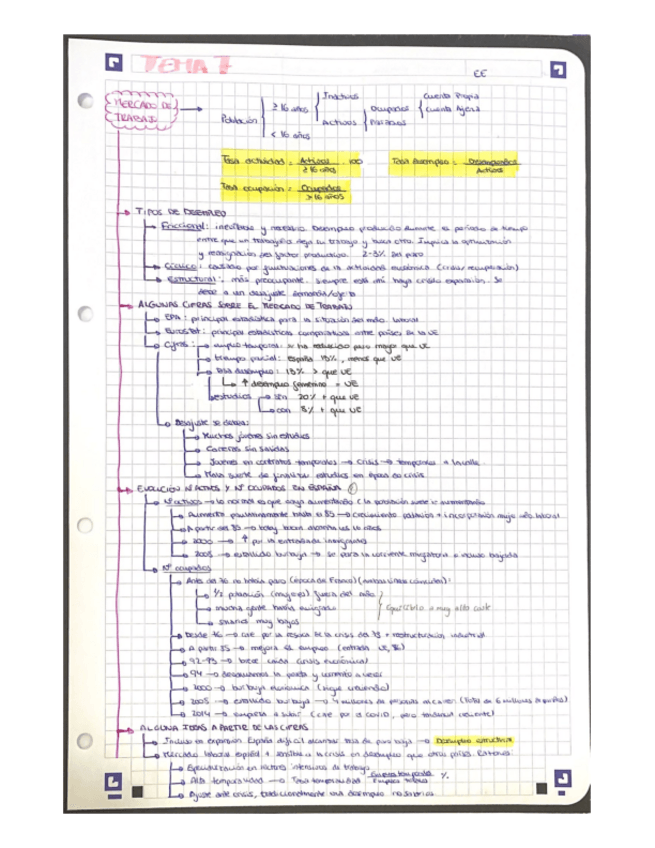 TEMA 7
EE
MERCADO DE TRABAJO
Población
≥ 16 años
< 16 años
Inactivos
Activos
Ocupados
Parados
Cuenta Propia
Cuenta Ajena
Tasa actividad = Activos / ≥ 16 años · 100
Tasa desempleo = Desempleados / Activos
Tasa ocupación = Ocupados / > 16 años
TIPOS DE DESEMPLEO
Friccional: inevitable y necesario. Desempleo producido durante el periodo de tiempo
entre que un trabajador deja su trabajo y busca otro. Implica la
y reasignación del factor productivo. 2-3% del paro
Cíclico: causado por fluctuaciones de la actividad económica (crisis/recuperación)
Estructural: más preocupante. Siempre está ahí haya crisis o expansión. Se
debe a un desajuste demanda/oferta
ALGUNAS CIFRAS SOBRE EL MERCADO DE TRABAJO
EPA: principal estadística para la situación del mdo. laboral
Eurostat: principales estadísticas comparativas entre países de la UE
Cifras: empleo temporal: se ha reducido pero mayor que UE
tiempo parcial: España 13%, menos que UE
tasa desempleo: 13% > que UE
↑ desempleo femenino = UE
estudios
sin 20% + que UE
con 8% + que UE
Desajuste se debe a:
Muchos jóvenes sin estudios
Carreras sin salidas
Jóvenes en contratos temporales → crisis → temporales a la calle
Mala suerte de finalizar estudios en época de crisis
EVOLUCIÓN Nº ACTIVOS Y Nº OCUPADOS EN ESPAÑA
Nº activos → lo normal es que vaya aumentando (la población suele ir aumentando)
Aumenta paulatinamente hasta el 85 → crecimiento población + incorporación mujer mdo. laboral
A partir del 85
2000 → ↑ por la entrada de inmigrantes
2008 → estallido burbuja → se para la corriente migratoria e incluso bajada
Nº ocupados
Antes del 76 no había paro (época de Franco)
1/2 población (mujeres) fuera del mdo
mucha gente había emigrado
salarios muy bajos
Equilibrio a muy alto coste
Desde 76 → cae por la resaca de la crisis del 73 + restructuración industrial
A partir 85 → mejora el empleo (entrada UE)
92-93 → breve caída (crisis económica)
94 → devaluamos la peseta y aumenta a crecer
2000 → burbuja económica (sigue creciendo)
2008 → estallido burbuja → millones de personas al caer (total de 6 millones de parados)
2014 → empieza a subir (cae por la covid, pero tendencia creciente)
ALGUNA IDEAS A PARTIR DE LAS CIFRAS
Incluso en expansión España difícil alcanzar tasa de paro baja → Desempleo estructural
Mercado laboral español + sensible a la crisis en desempleo que otros países.
Especialización en sectores intensivos de trabajo
Alta temporalidad → Tasa temporalidad %
Ajuste ante crisis, tradicionalmente vía desempleo no salarios